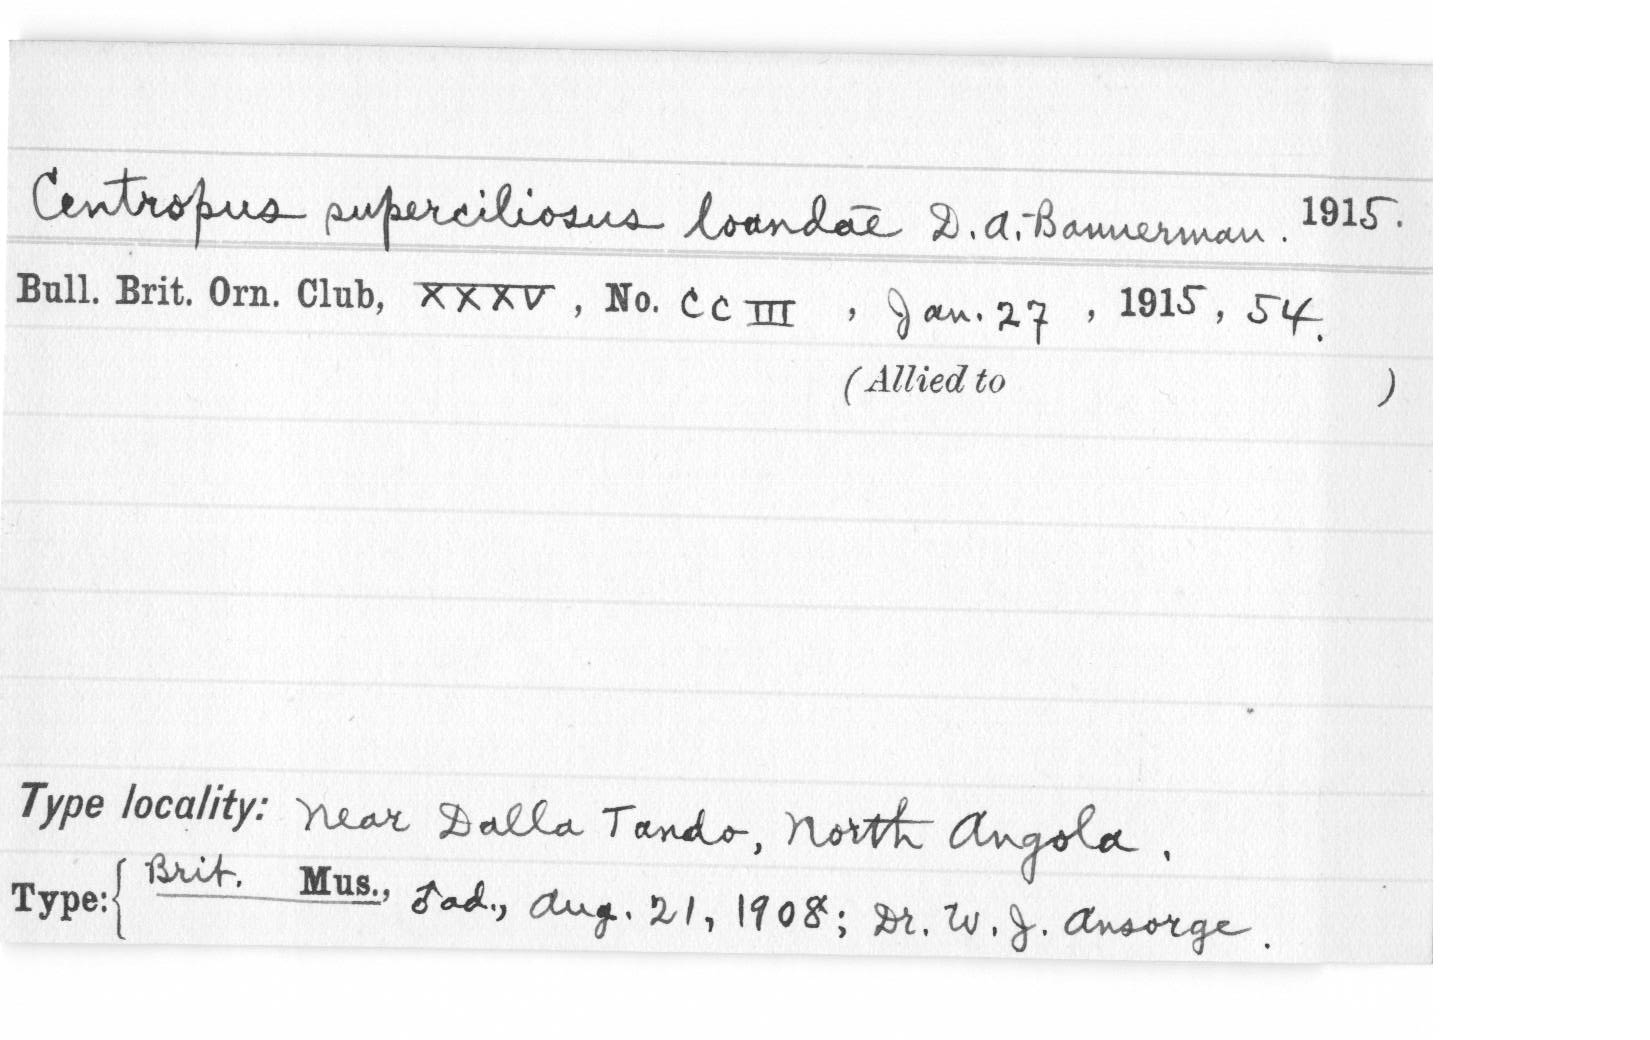 Centropus superciliosus loandae D. A. Bannerman. 1915.
Bull. Brit. Orn. Club, XXXV, No. CCIII, Jan. 27, 1915, 54.
(Allied to )
Type locality: Near Dalla Tando, North Angola.
Type:{ Brit. Mus., ♂ad., Aug. 21, 1908; Dr. W. J. Ansorge.